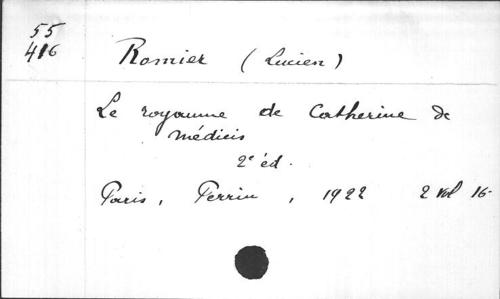 55
416
Romier (Lucien)
Le royaume de Catherine de
Médicis
2e éd.
Paris, Perrin, 1922 2 vol 16-